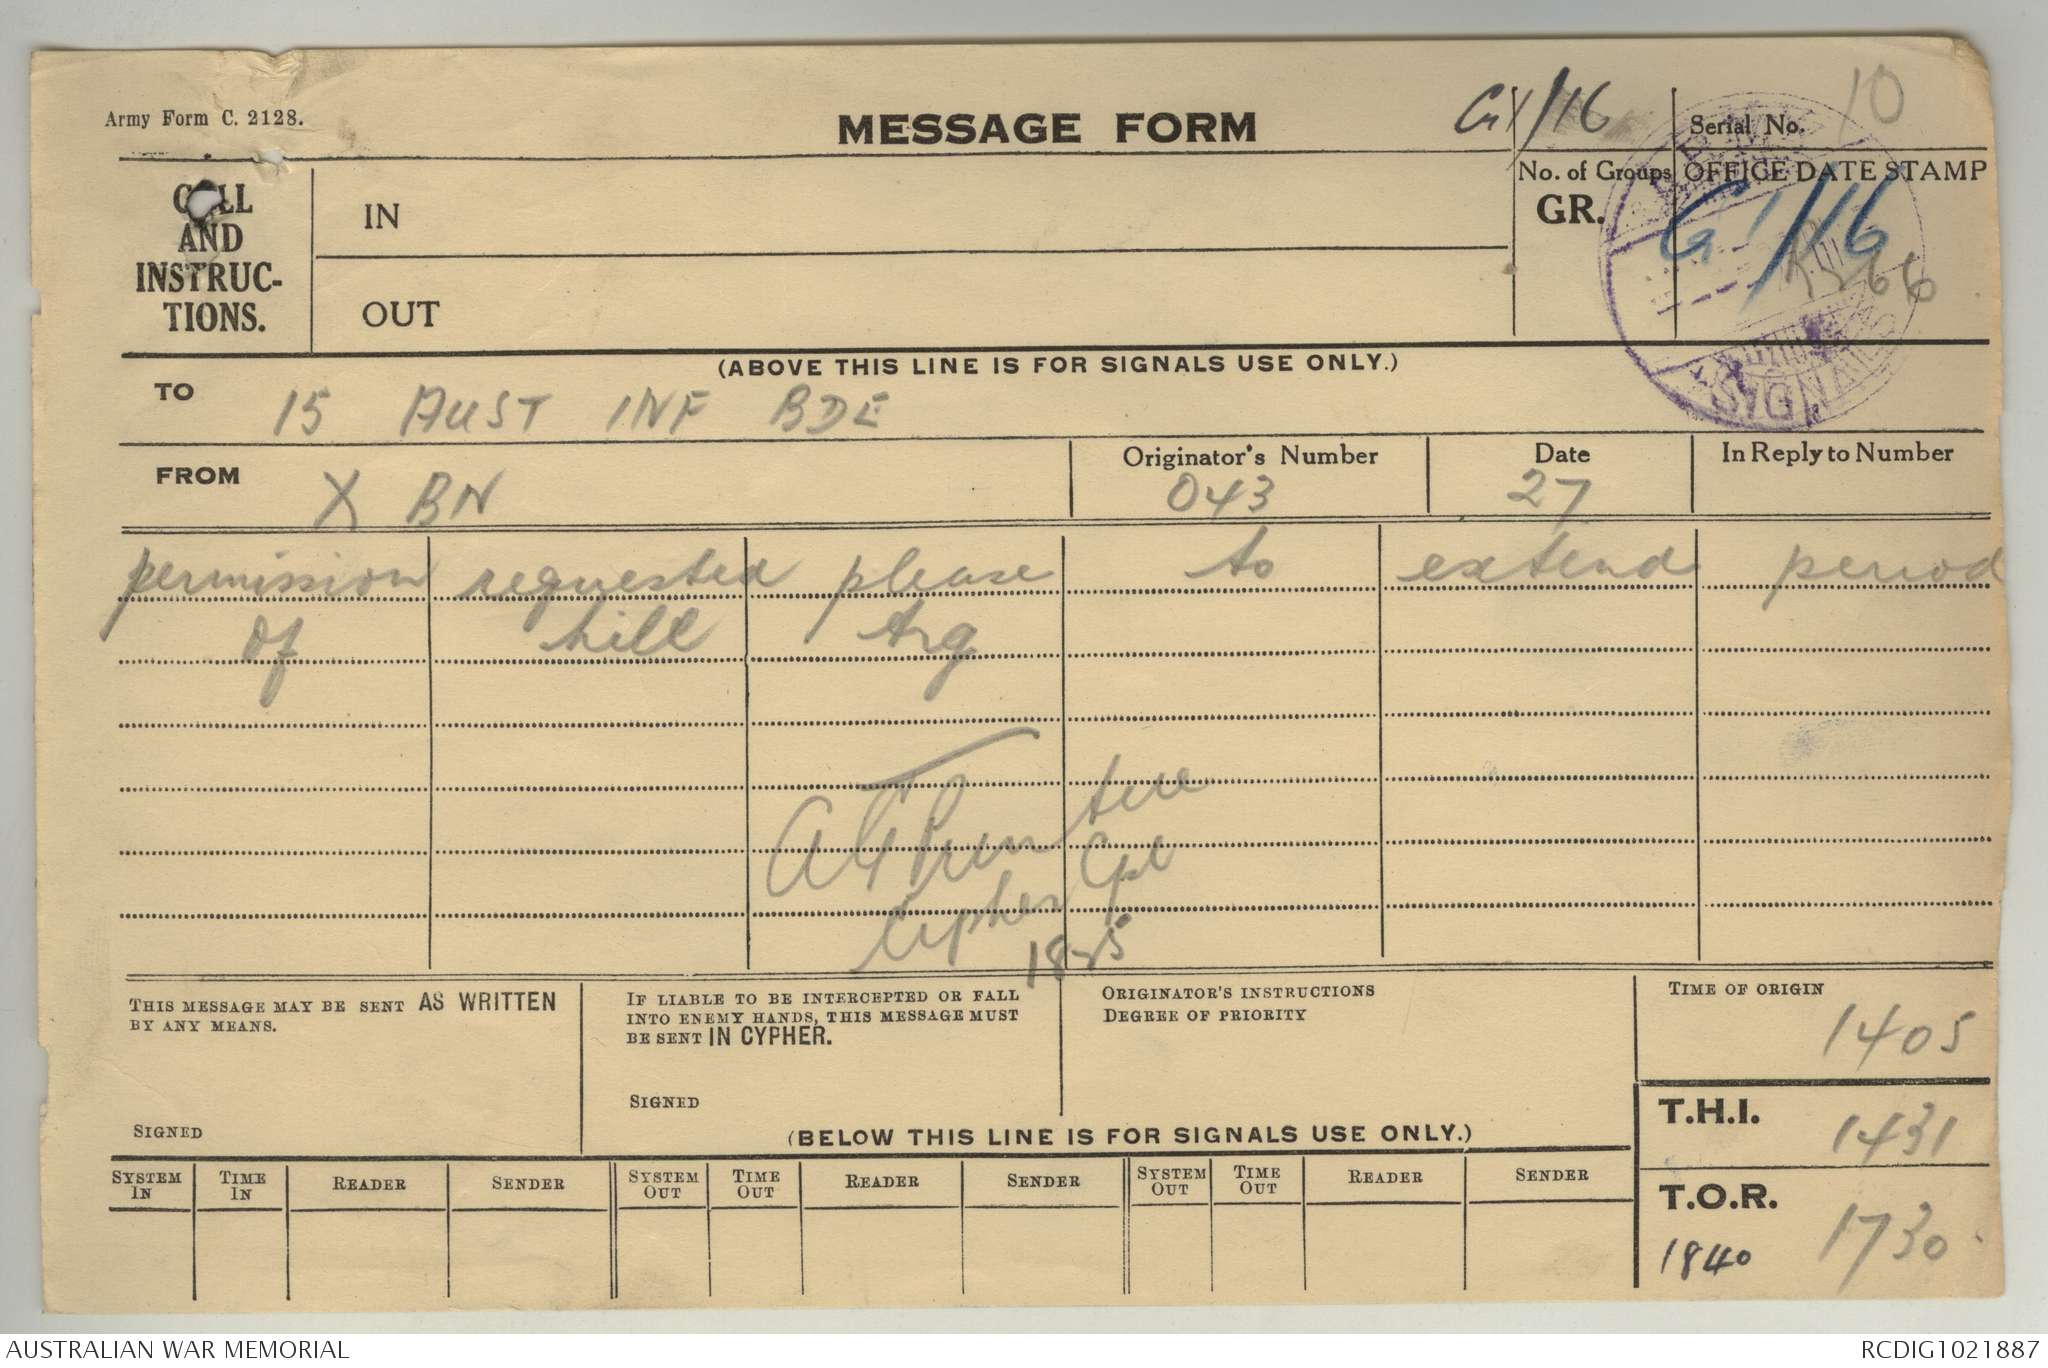 Army Form C. 2128.
MESSAGE FORM
G1/16
Serial No. 10
CALL AND INSTRUC-TIONS.
IN
OUT
No. of Groups
GR.
OFFICE DATE STAMP
G1/16
SIGNALS
(ABOVE THIS LINE IS FOR SIGNALS USE ONLY.)
TO 15 AUST INF BDE
FROM X BN
Originator's Number 043
Date 27
In Reply to Number
permission requested please to extend period
of hill trg
Cipher Cpl
1825
THIS MESSAGE MAY BE SENT AS WRITTEN
BY ANY MEANS.
SIGNED
IF LIABLE TO BE INTERCEPTED OR FALL
INTO ENEMY HANDS, THIS MESSAGE MUST
BE SENT IN CYPHER.
SIGNED
ORIGINATOR'S INSTRUCTIONS
DEGREE OF PRIORITY
TIME OF ORIGIN
1405
T.H.I.
1431
T.O.R.
1840 1730
(BELOW THIS LINE IS FOR SIGNALS USE ONLY.)
SYSTEM IN TIME IN READER SENDER SYSTEM OUT TIME OUT READER SENDER SYSTEM OUT TIME OUT READER SENDER
AUSTRALIAN WAR MEMORIAL
RCDIG1021887